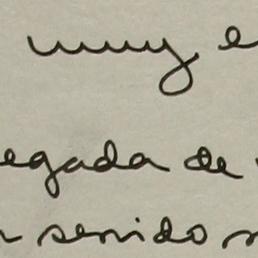 muy e
egada de
n senido n